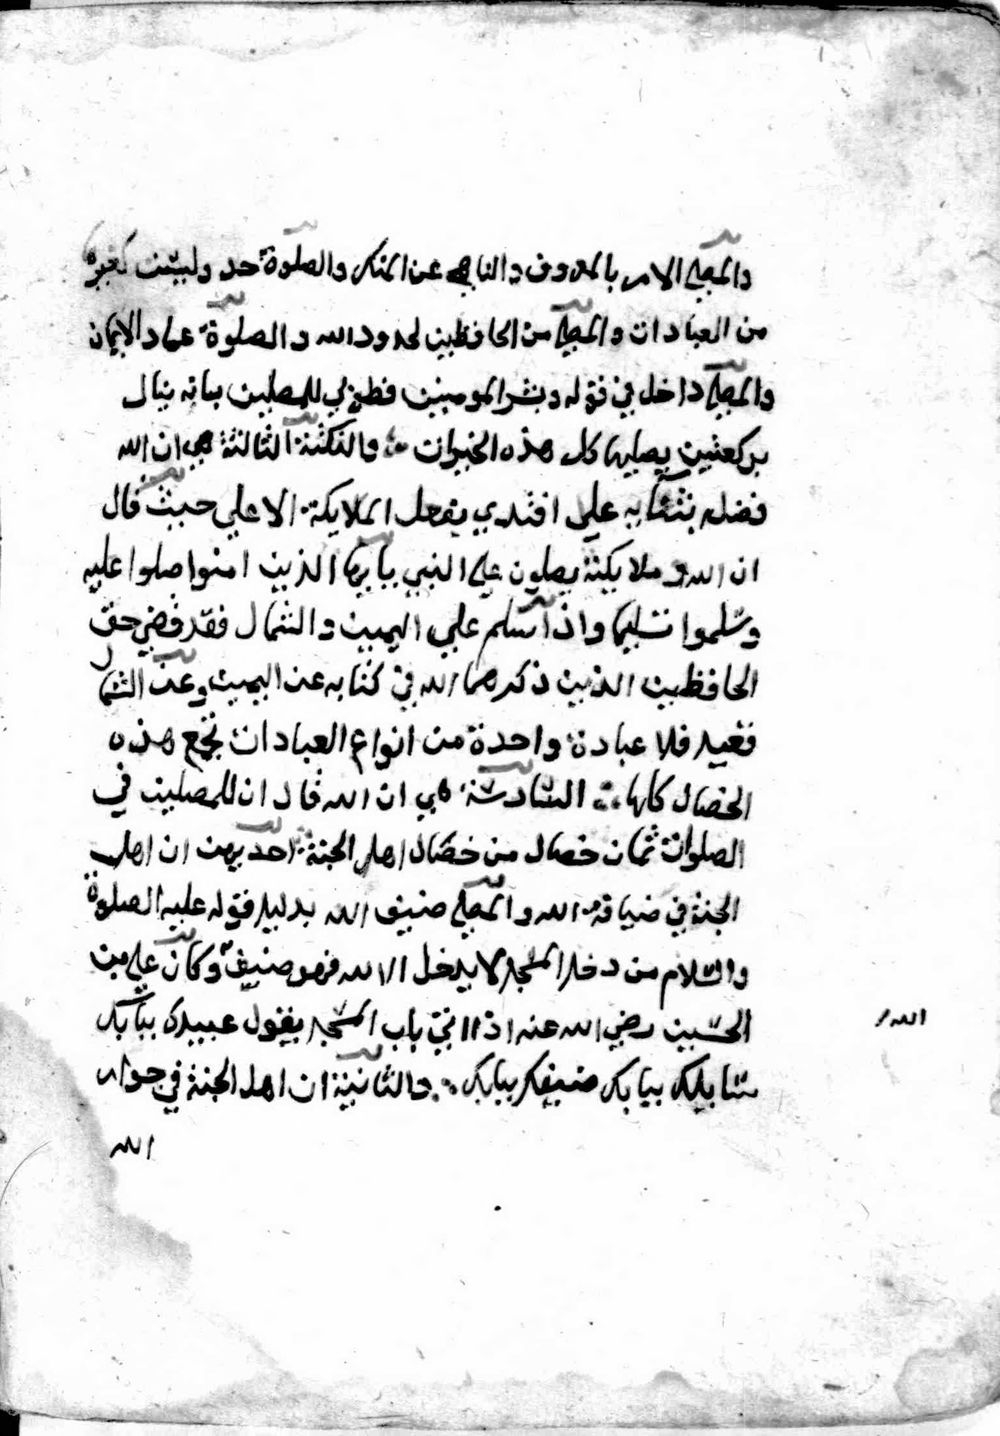 والمصلي الامر بالمعروف والناهي عن المنكر والصلوة حد وليست كغيره
من العبادات والمصلي من الحافظين لحدود الله والصلوة عماد الايمان
والمصلي داخل في قوله وبشر المومنين فطوبي للمصلين بانه ينال
بركعتين يصليها كل هذه الخيرات والنكتة الثالثة هي ان الله
فضله بتشابه علي اقتدي بفعل الملايكة الاعلي حيث قال
ان الله وملايكته يصلون علي النبي يايها الذين امنوا صلوا عليه
وسلموا تسليما واذا سلم علي اليمين والشمال فقد قضي حق
الحافظين الذين ذكرهما الله في كتابه عن اليمين وعن الشمال
قعيد فلا عبادة واحدة من انواع العبادات تجمع هذه
الخصال كلها السادسة هي ان الله قال ان للمصلين في
الصلوات ثمان خصال من خصال اهل الجنة احديهن ان اهل
الجنة في ضيافة الله والمصلي ضيف الله بدليل قوله عليه الصلوة
والسلام من دخل المسجد لا يدخل الا لله فهو ضيف وكان علي بن
الحسين رضي الله عنه اذا اتي باب المسجد يقول عبيدك ببابك
الله
سايلك ببابك ضيفك ببابك والثانية ان اهل الجنة في جوار
الله